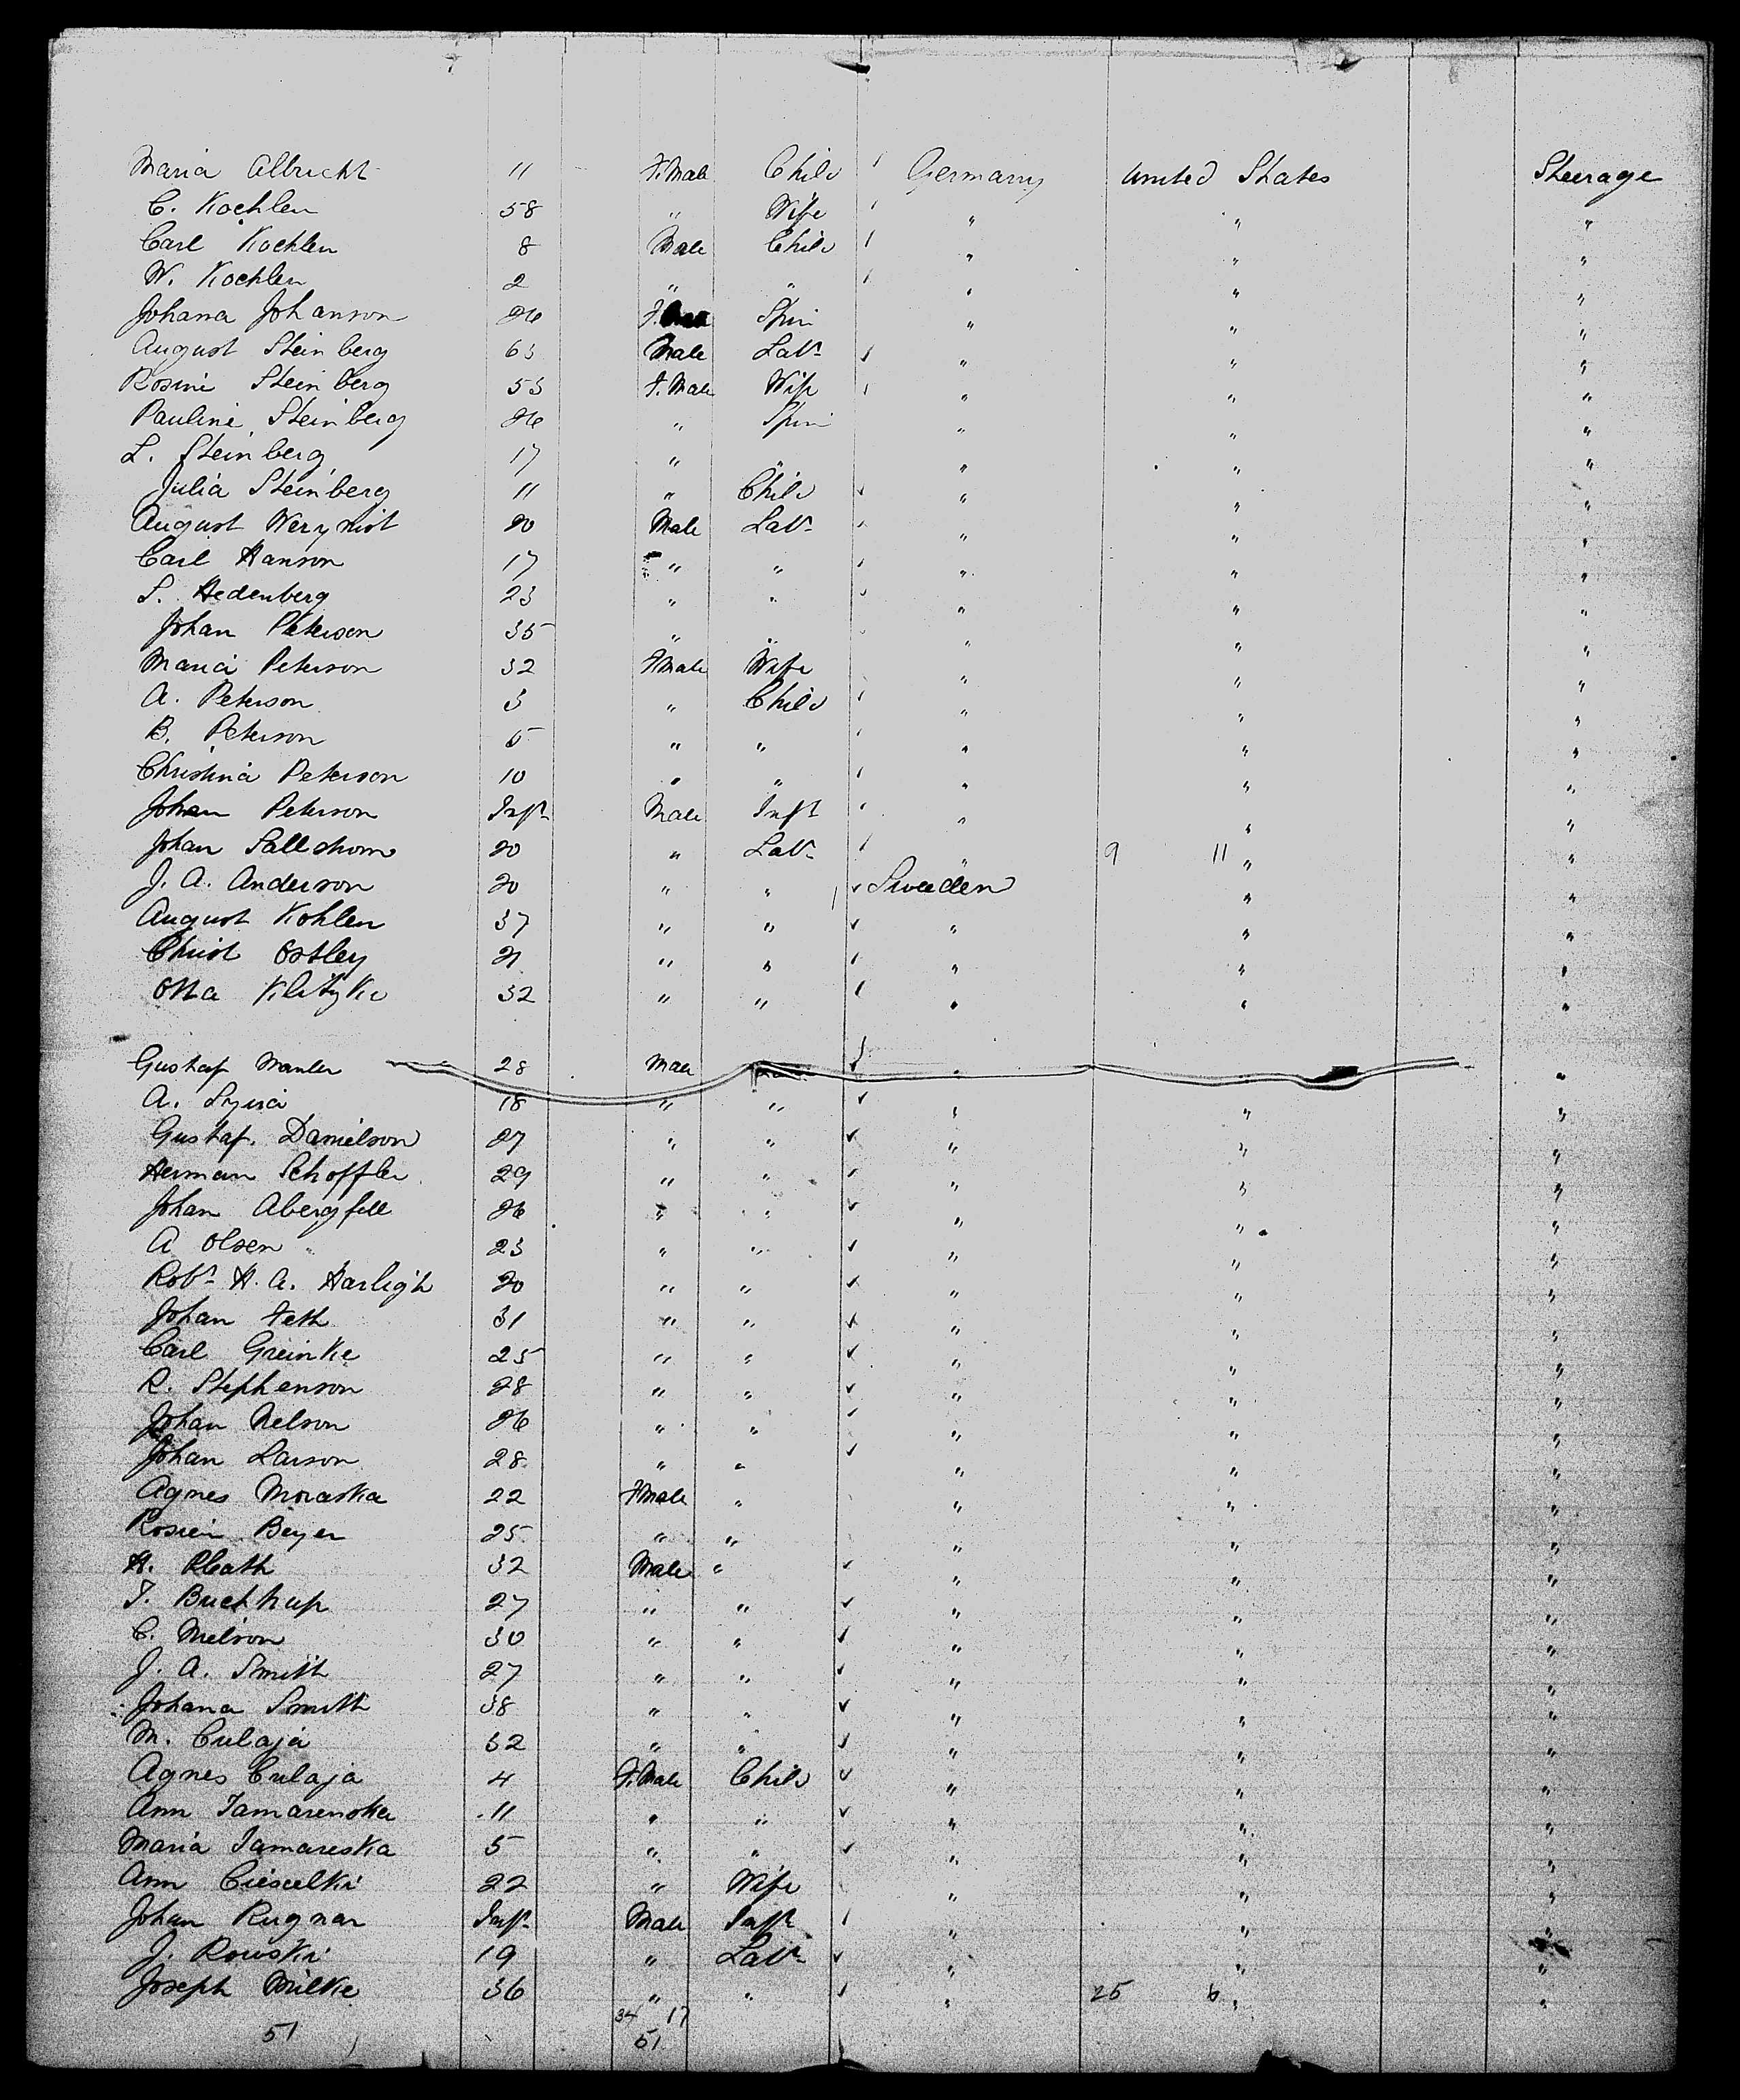 Maria Albrecht 11 F.Male Child Germany United States Steerage
C. Kochlen 58 " Wife " " "
Carl Kochlen 8 Male Child " " "
W. Kochlen 2 " " " " "
Johana Johanson 26 Spin " " "
August Steinberg 63 Male Labr " " "
Rosine Steinberg 53 F.Male Wife " " "
Pauline Steinberg 26 " Spin " " "
L. Steinberg 17 " " " " "
Julia Steinberg 11 " Child " " "
August 20 Male Labr " " "
Carl Hanson 17 " " " " "
S. Hedenberg 23 " " " " "
Johan Peterson 35 " " " " "
Maria Peterson 32 FMale Wife " " "
A. Peterson 3 " Child " " "
B. Peterson 5 " " " " "
Christina Peterson 10 " " " " "
Johan Peterson Inft Male Inft " " "
Johan 20 " Labr " 9 11 " "
J. A. Anderson 20 " " Sweeden " "
August Kohlen 37 " " " " "
Christ Ostley 21 " " " " "
Otta 32 " " " " "
Gustaf 28 Male " "
A. 18 " " " " "
Gustaf. Danielson 27 " " " " "
Herman Schoffler 29 " " " " "
Johan Abergfell 26 " " " " "
A Olsen 23 " " " " "
Robt H. A. Harligh 20 " " " " "
Johan Feth 31 " " " " "
Carl Greinke 25 " " " " "
R. Stephenson 28 " " " " "
Johan Nelson 26 " " " " "
Johan Larson 28 " " " " "
Agnes Moraska 22 FMale " " " "
Rosien Beyer 25 " " " " "
H. Pleath 32 Male " " " "
T. 27 " " " " "
C. Nelson 30 " " " " "
J. A. Smith 27 " " " " "
Johana Smith 38 " " " " "
M. Culaja 32 " " " " "
Agnes Culaja 4 F.Male Child " " "
Ann Tamarenska 11 " " " " "
Maria Tamareska 5 " " " " "
Ann 22 " Wife " " "
Johan Rugnar Inft Male Inft " " "
J. Rouski 19 " Labr " " "
Joseph Milke 36 " " " 25 6 " "
34 17
51 51